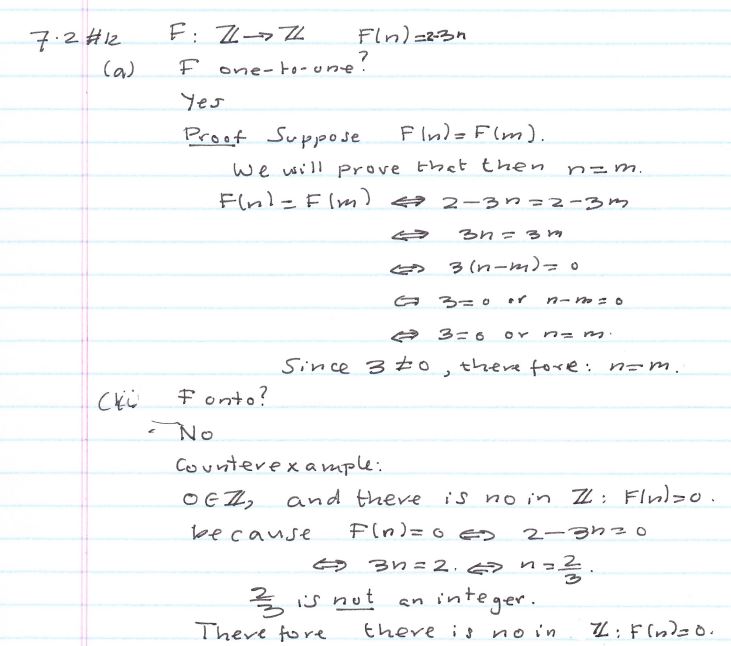 7.2 #12 F: ℤ→ℤ F(n)=2-3n
(a) F one-to-one?
Yes
Proof Suppose F(n)=F(m).
We will prove that then n=m.
F(n)=F(m) ⇔ 2-3n=2-3m
⇔ 3n=3m
⇔ 3(n-m)=0
⇔ 3=0 or n-m=0
⇔ 3=0 or n=m.
Since 3≠0, therefore: n=m.
F onto?
No
Counterexample:
0∈ℤ, and there is no in ℤ: F(n)=0.
because F(n)=0 ⇔ 2-3n=0
⇔ 3n=2. ⇔ n=2/3.
2/3 is not an integer.
Therefore there is no in ℤ: F(n)=0.